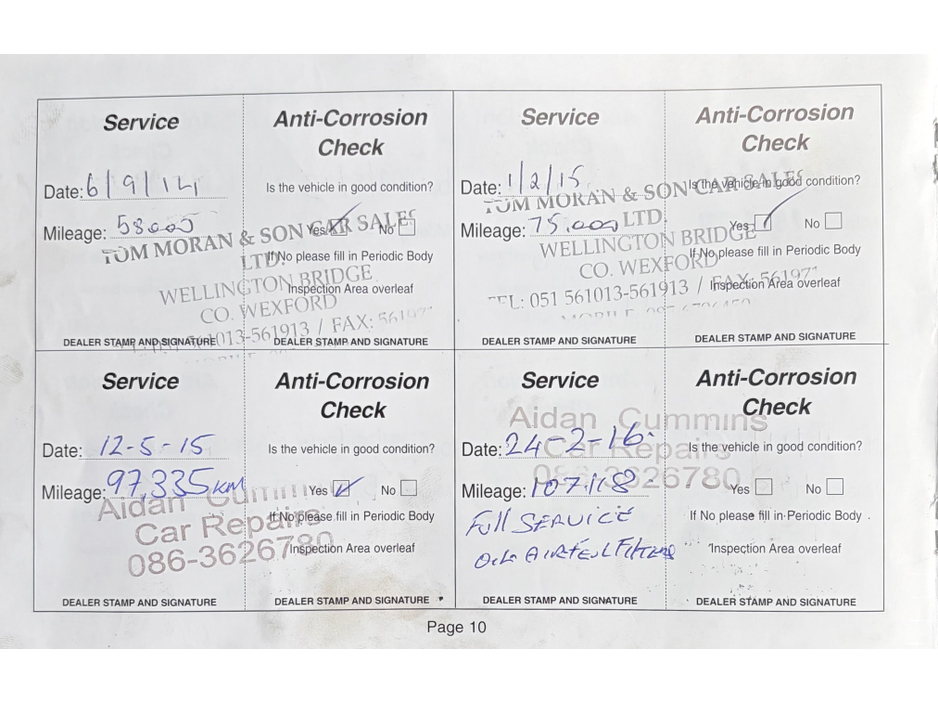 Service
Anti-Corrosion
Check
Date: 6/9/14
Is the vehicle in good condition?
Mileage: 58000
Yes No
If No please fill in Periodic Body
Inspection Area overleaf
TOM MORAN & SON CAR SALES
LTD.
WELLINGTON BRIDGE
CO. WEXFORD
013-561913 / FAX:
DEALER STAMP AND SIGNATURE
DEALER STAMP AND SIGNATURE
Service
Anti-Corrosion
Check
Date: 1/2/15
Is the vehicle in good condition?
Mileage: 75.000
Yes No
If No please fill in Periodic Body
Inspection Area overleaf
TOM MORAN & SON CAR SALES
LTD.
WELLINGTON BRIDGE
CO. WEXFORD
TEL: 051 561013-561913 / FAX:
DEALER STAMP AND SIGNATURE
DEALER STAMP AND SIGNATURE
Service
Anti-Corrosion
Check
Date: 12-5-15
Is the vehicle in good condition?
Mileage: 97,335 KM
Yes No
If No please fill in Periodic Body
Inspection Area overleaf
Aidan Cummins
Car Repairs
086-3626780
DEALER STAMP AND SIGNATURE
DEALER STAMP AND SIGNATURE
Service
Anti-Corrosion
Check
Aidan Cummins
Car Repairs
086-3626780
Date: 24-2-16.
Is the vehicle in good condition?
Mileage: 107.118 -
Yes No
If No please fill in Periodic Body
Inspection Area overleaf
Full SERVICE
OIL AIR FEUL FILTERS
DEALER STAMP AND SIGNATURE
DEALER STAMP AND SIGNATURE
Page 10